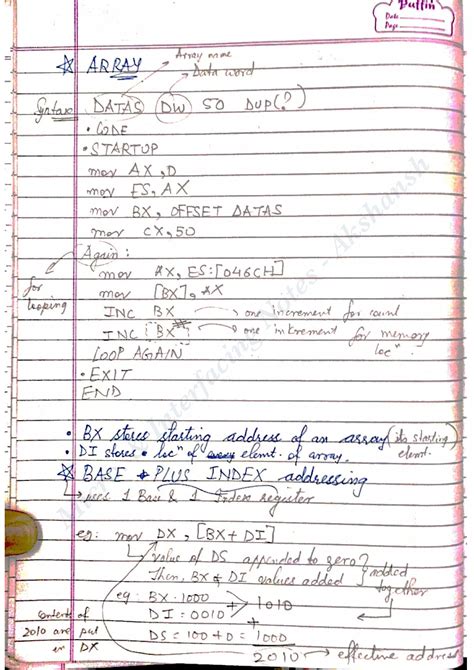 Puffin
Date
Page
Array name
☆ ARRAY
Data word
Syntax DATAS DW 50 DUP(?)
• CODE
• STARTUP
mov AX, D
mov ES, AX
mov BX, OFFSET DATAS
mov CX, 50
Again:
for looping
mov AX, ES:[046CH]
mov [BX], AX
INC BX → one increment for count
INC BX → one increment for memory locⁿ
LOOP AGAIN
• EXIT
END
• BX stores starting address of an array (its starting elemt.
• DI stores locⁿ of elemt. of array.
☆ BASE PLUS INDEX addressing
→ uses 1 Base & 1 Index register
eg: mov DX, [BX + DI]
value of DS appended to zero?
Then, BX & DI values added } added together
eg: BX = 1000
DI = 0010 + 1010
DS = 100 + 0 = 1000
2010 → effective address
contents of
2010 are put
in DX
Interfacing Notes - Akshansh